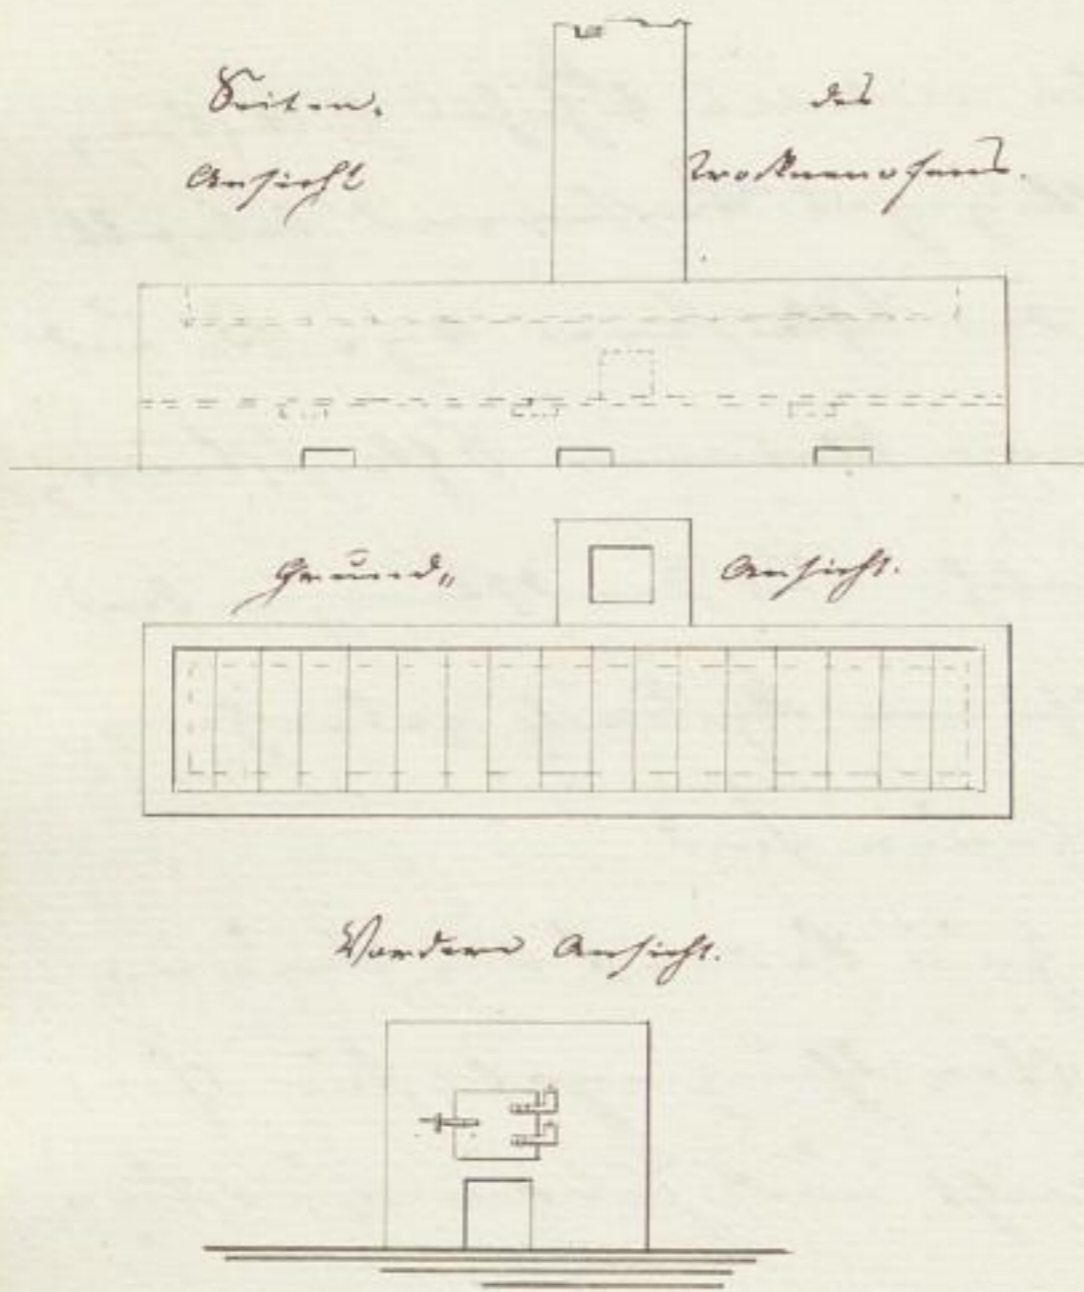 Seiten-
Ansicht
des
Trockenenofens.
Grund„
Ansicht.
Vordere Ansicht.